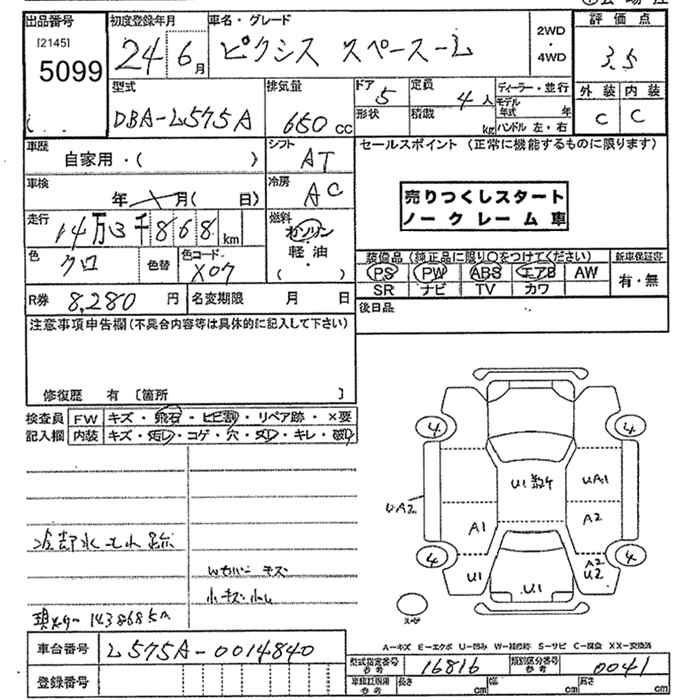 出品番号 初度登録年月 車名・グレード 2WD・4WD 評価点
[2145]
5099 24年6月 ピクシス スペース-L 3.5
型式 排気量 ドア 5 定員 4人 ディーラー・並行 外装 内装
DBA-L575A 650cc 形状 積載 kg モデル年式 年 C C
ハンドル 左・右
車歴 自家用・( ) シフト AT セールスポイント (正常に機能するものに限ります)
車検 年 月( 日) 冷房 AC
売りつくしスタート
ノークレーム車
走行 14万3千868km 燃料 ガソリン・軽油 ( )
色 クロ 色替 色コード X07
装備品 (純正品に限り○をつけてください) 新車保証書
PS PW ABS エアB AW 有・無
SR ナビ TV カワ
R券 8,280円 名変期限 月 日 後日品
注意事項申告欄(不具合内容等は具体的に記入して下さい)
修復歴 有 [箇所 ]
検査員 FW キズ・飛石・ヒビ割・リペア跡・×要
記入欄 内装 キズ・汚レ・コゲ・穴・スレ・キレ・破レ
4 4
U1 UA1
UA2
A1 A2
4 4
U1 A2 U2
U1
冷却水モレ跡
Wカバー キズ
小キズ小凹
143868km
スペア
A-キズ E-エクボ U-凹み W-補修跡 S-サビ C-腐食 XX-交換済
車台番号 L575A-0014840
型式指定番号 参考 16816 類別区分番号 参考 0041
登録番号 長さ cm 幅 cm 高さ cm